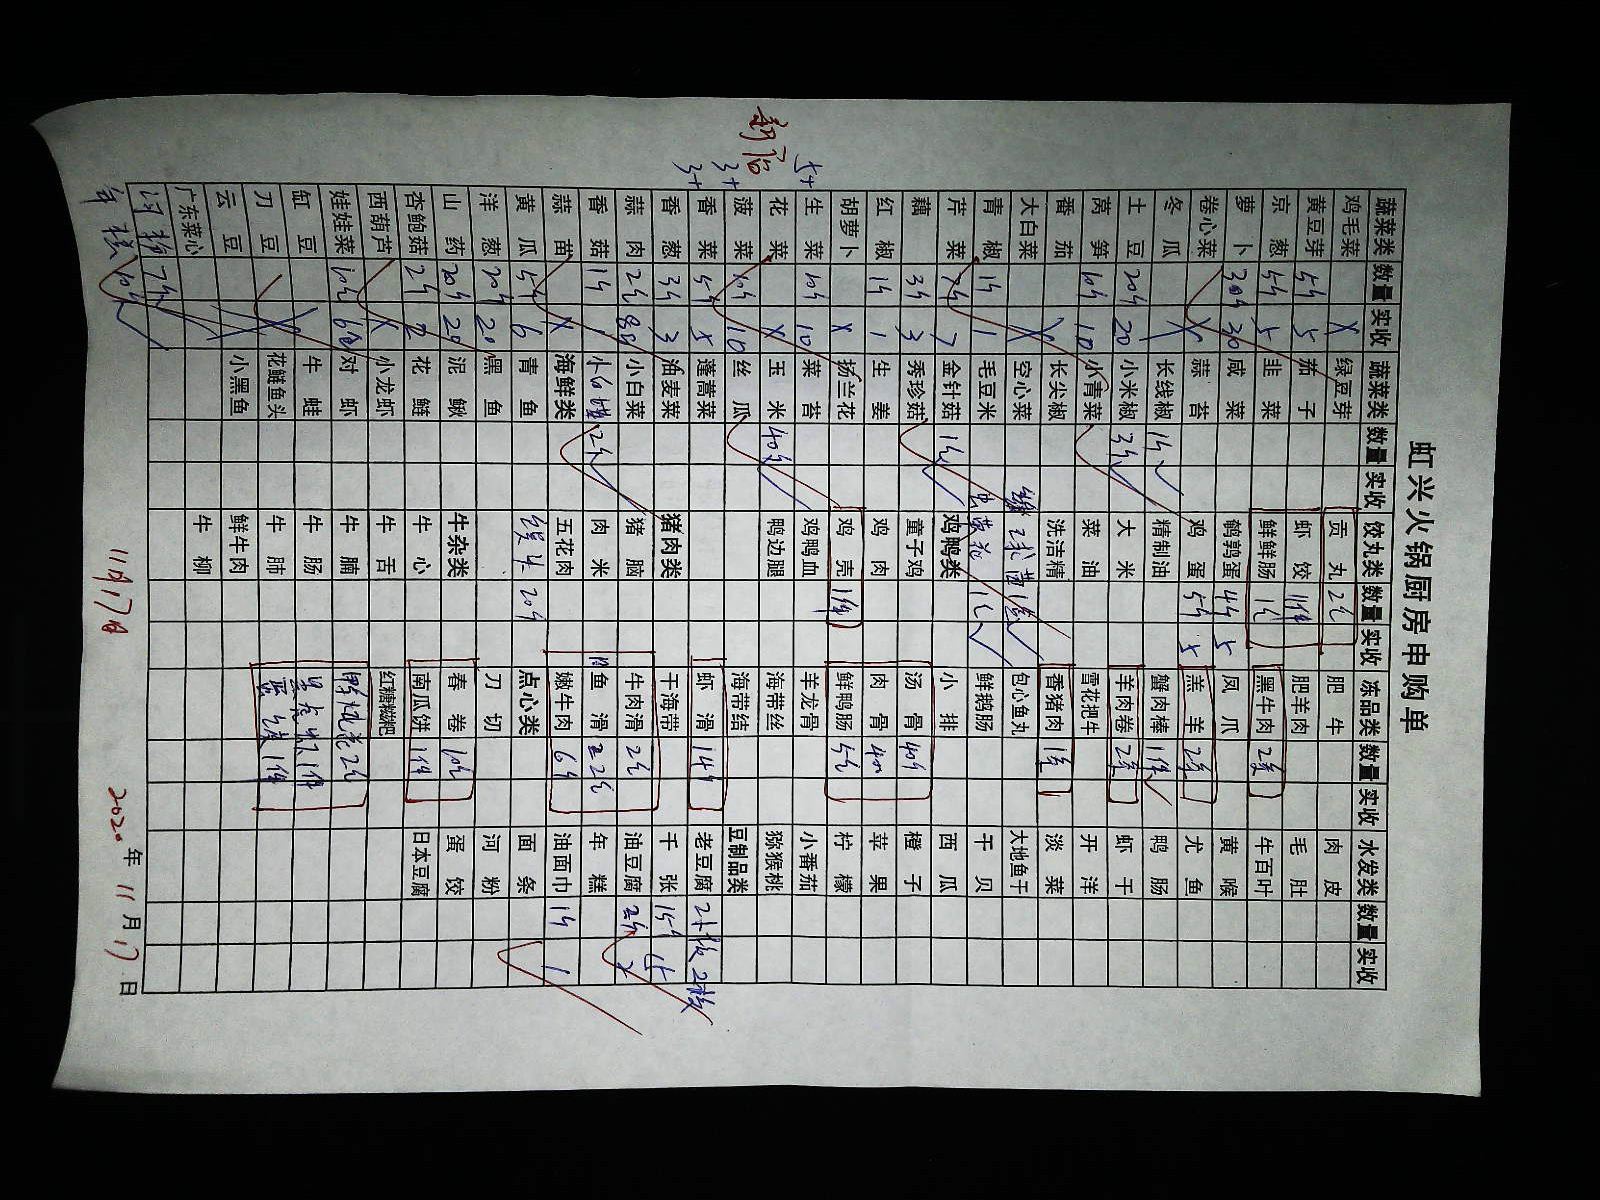 虹兴火锅厨房申购单
蔬菜类 数量 实收 蔬菜类 数量 实收 饺丸类 数量 实收 冻品类 数量 实收 水发类 数量 实收
鸡毛菜 X 绿豆芽 贡丸 肥牛 肉皮
黄豆芽 5斤 5 茄子 虾饺 1件 肥羊肉 毛肚
京葱 5斤 5 韭菜 鲜鲜肠 黑牛肉 牛百叶
萝卜 30斤 30 咸菜 鹌鹑蛋 4斤 5 凤爪 黄喉
卷心菜 X 蒜苔 鸡蛋 5斤 5 羔羊 尤鱼
冬瓜 X 长线椒 1斤 精制油 蟹肉棒 1件 鸭肠
土豆 20斤 20 小米椒 3斤 大米 羊肉卷 虾干
莴笋 10斤 10 小青菜 菜油 雪花把牛 开洋
番茄 长尖椒 洗洁精 香猪肉 淡菜
大白菜 X 空心菜 包心鱼丸 大地鱼干
青椒 1斤 1 毛豆米 虫草花 鲜鹅肠 干贝
芹菜 7斤 7 金针菇 鸡鸭类 小排 西瓜
藕 3斤 3 秀珍菇 童子鸡 汤骨 40斤 橙子
红椒 1斤 1 生姜 鸡肉 肉骨 苹果
胡萝卜 X 扬兰花 鸡壳 1件 鲜鸭肠 柠檬
5+ 生菜 10斤 10 菜苔 鸡鸭血 羊龙骨 小番茄
花菜 X 玉米 40斤 鸭边腿 海带丝 猕猴桃
新店 3+ 菠菜 10斤 10 丝瓜 海带结 豆制品类
3+ 香菜 5斤 5 蓬蒿菜 虾滑 14斤 老豆腐 2板
香葱 3斤 3 油麦菜 猪肉类 干海带 千张 15斤 15
蒜肉 小白菜 猪脑 牛肉滑 油豆腐 2斤 2
香菇 1斤 1 肉米 鱼滑 年糕
蒜苗 X 海鲜类 五花肉 嫩牛肉 6斤 油面巾 1斤 1
黄瓜 5斤 6 青鱼 20斤 点心类 面条
洋葱 20斤 20 黑鱼 刀切 河粉
山药 20斤 20 泥鳅 牛杂类 春卷 蛋饺
杏鲍菇 2斤 2 花鲢 牛心 南瓜饼 1件 日本豆腐
西葫芦 X 小龙虾 牛舌 红糖糍粑
娃娃菜 10斤 对虾 牛腩
缸豆 牛蛙 牛肠 1件
刀豆 X 花鲢鱼头 牛肺 1件
云豆 小黑鱼 鲜牛肉
广东菜心 牛柳
7斤
年糕 10斤
11月17日 2020年11月17日